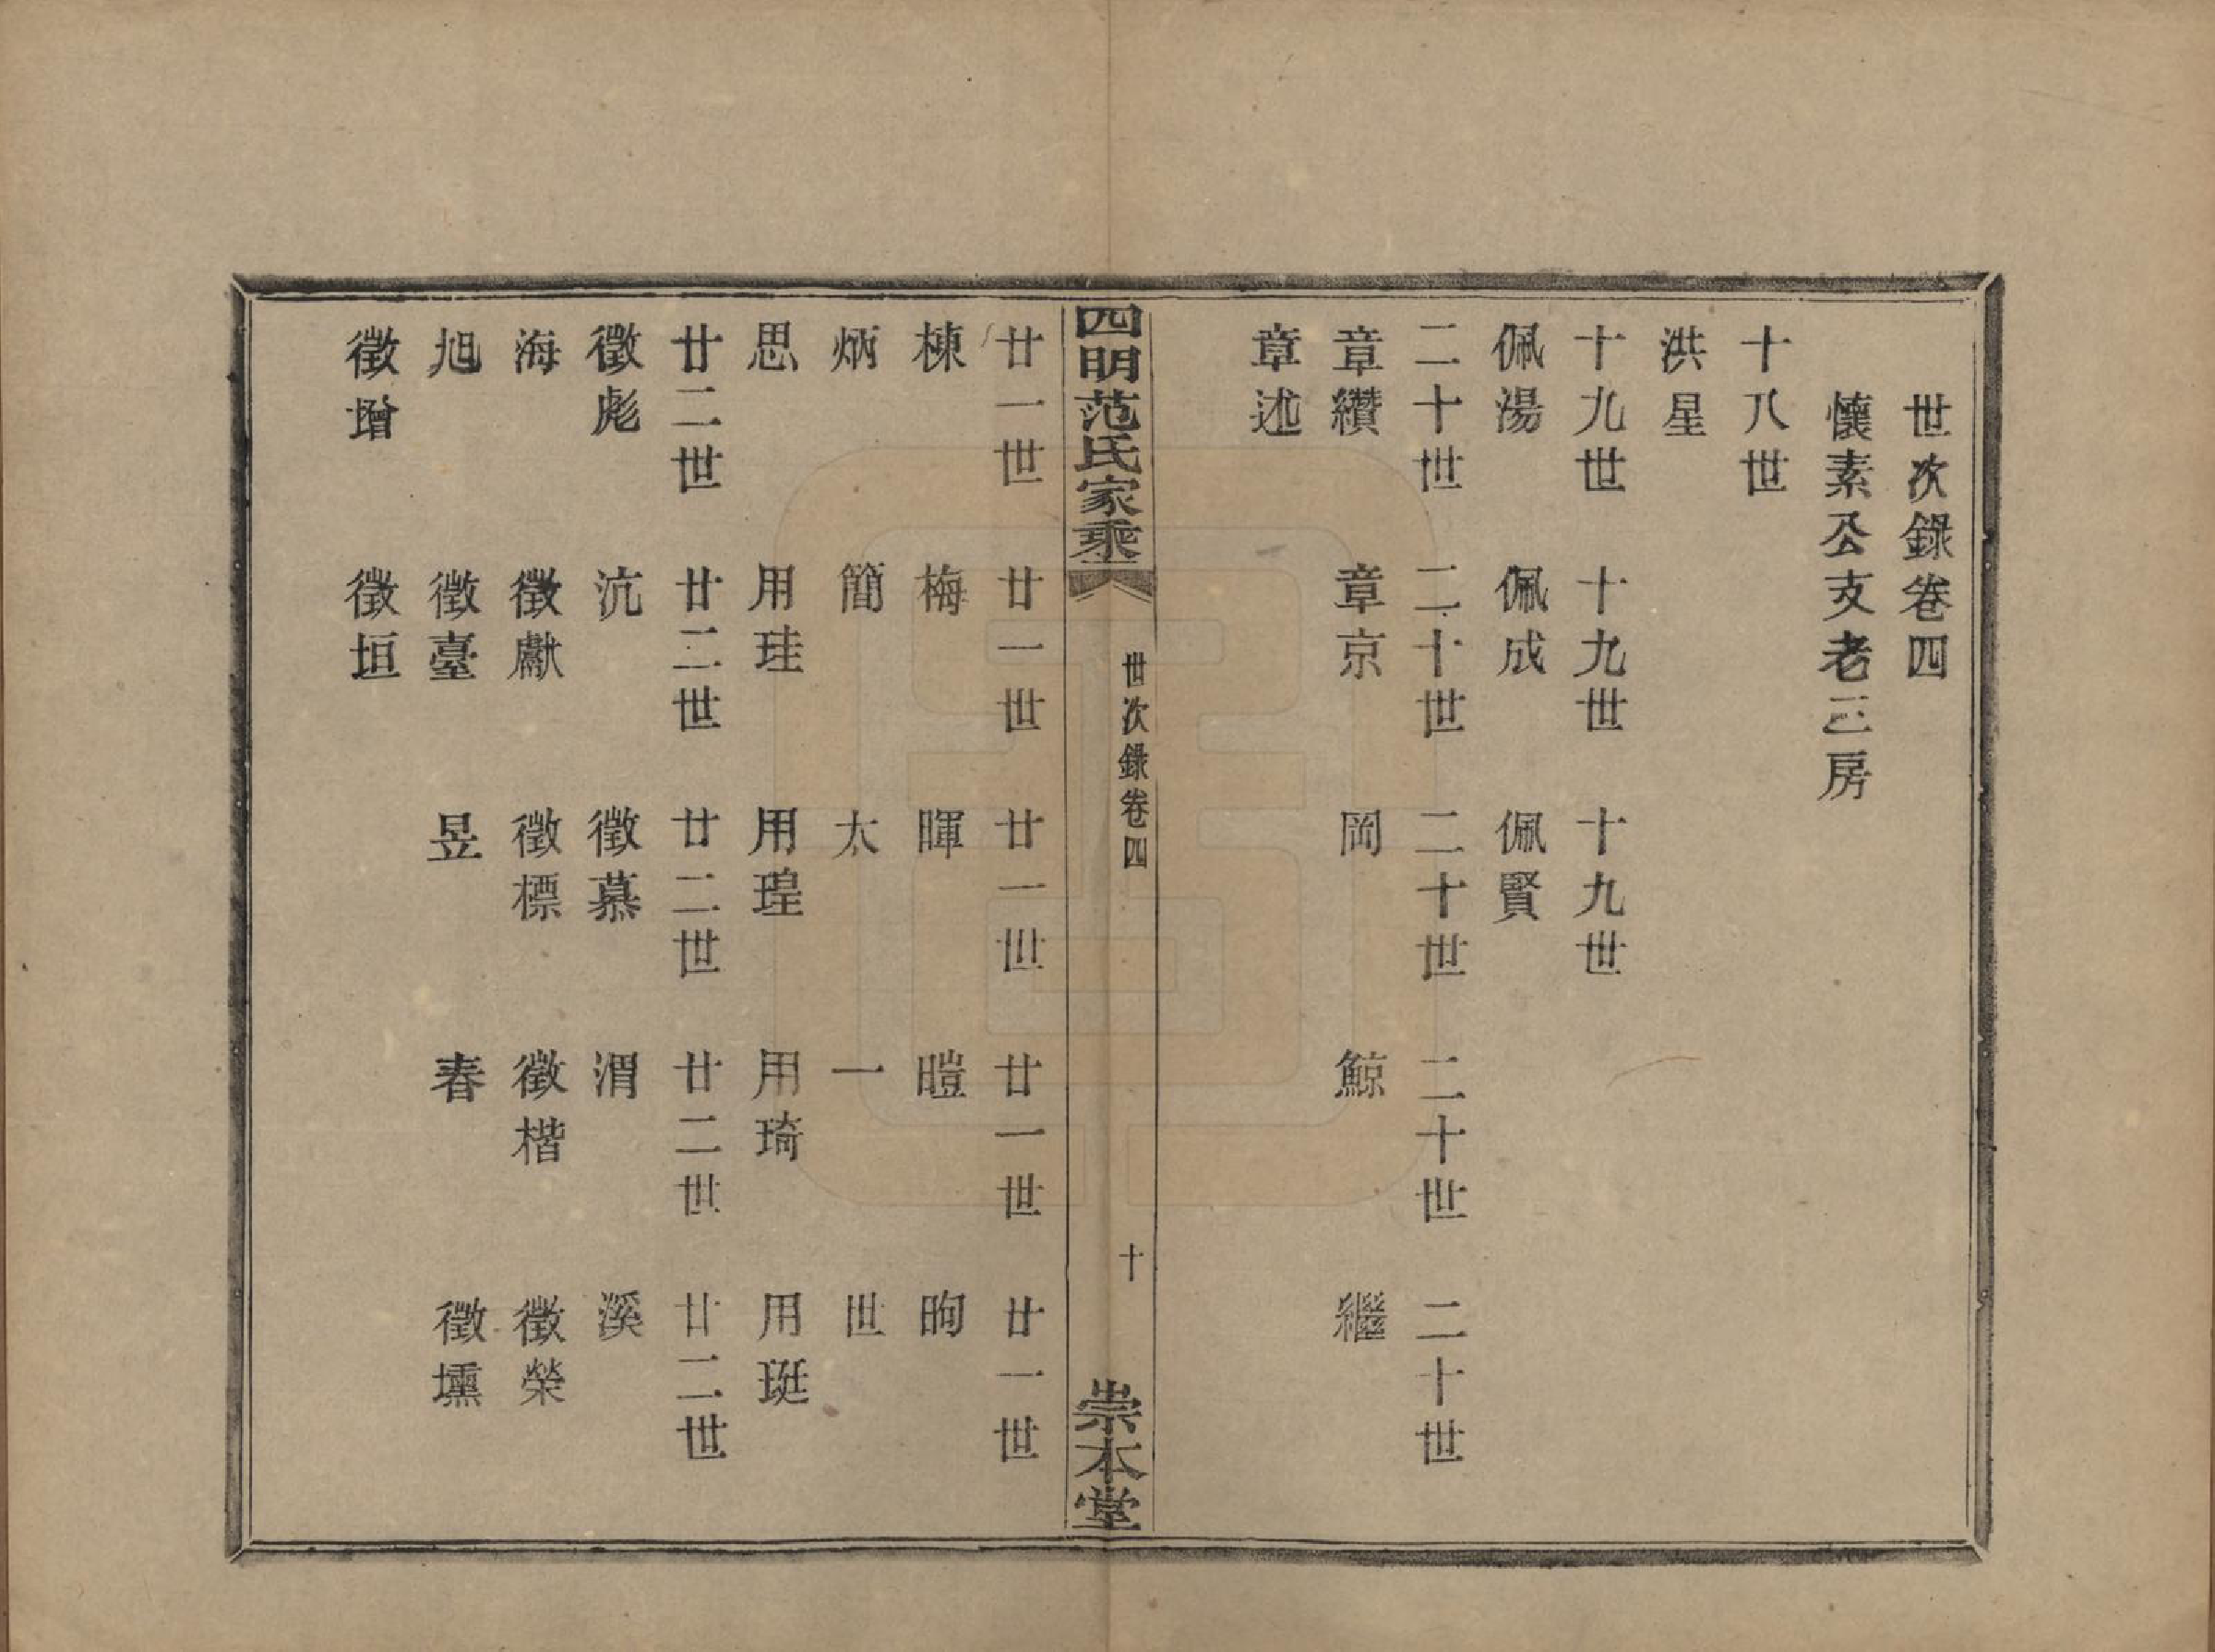 世次錄卷四
懷素公支老三房
十八世
洪星
十九世 十九世 十九世
佩湯 佩成 佩賢
二十世 二十世 二十世 二十世 二十世
章纘 章京 岡 鯨 繼
章述
四明范氏家乘 世次錄卷四 十 崇本堂
廿一世 廿一世 廿一世 廿一世 廿一世
棟 梅 暉 暟 昫
炳 簡 太 一 世
思 用珪 用瑝 用琦 用珽
廿二世 廿二世 廿二世 廿二世 廿二世
徵彪 沆 徵慕 渭 溪
海 徵獻 徵標 徵楷 徵榮
旭 徵臺 昱 春 徵壎
徵增 徵垣